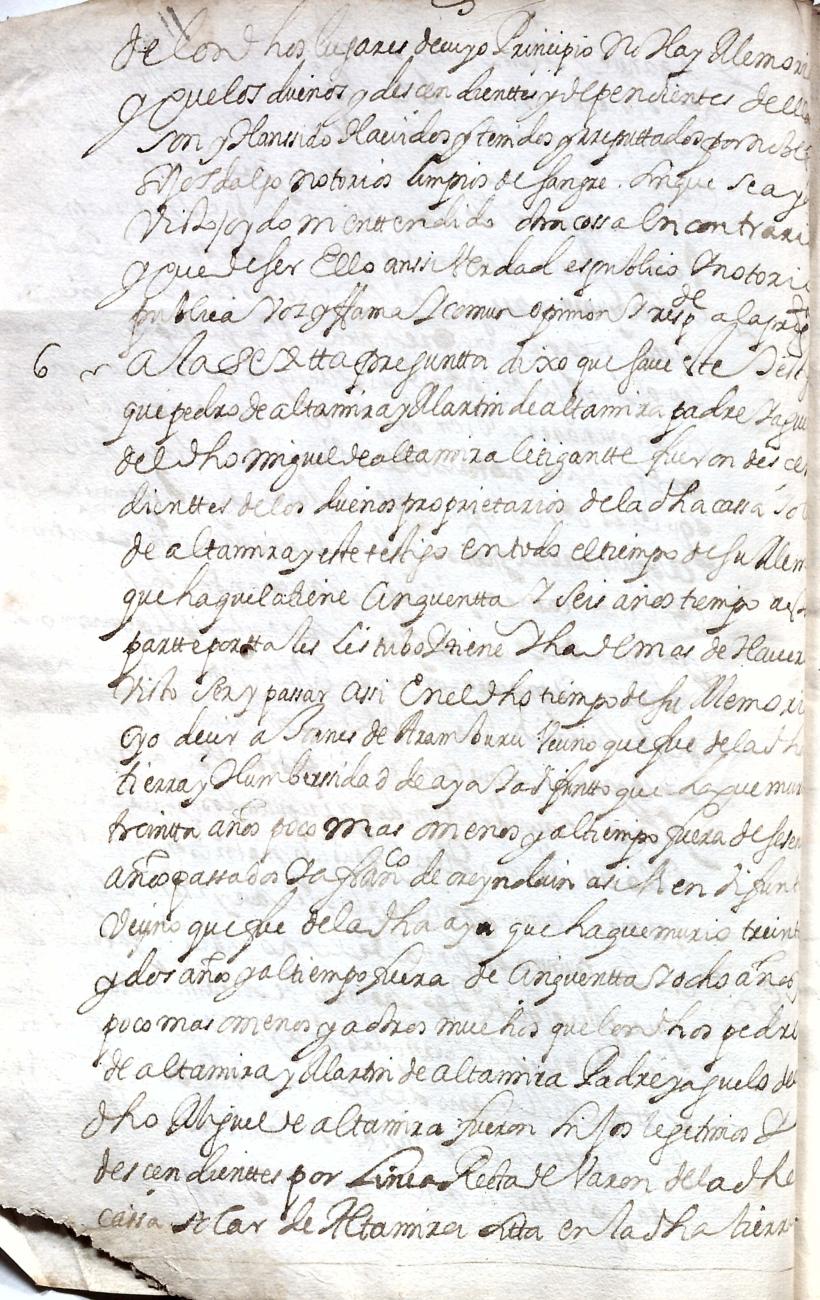 de los dhos lugares de cuyo Principio No Hay Memori
y que los dueños y descendienttes y dependientes de ella
son y Han sido Havidos y tenidos y rreputtados por noble
Hijos dalgo notorios limpios de sangre. sin que se aya
Visto oydo ni enttendido otra cossa En contrari
y que de ser Ello anssi Verdad es publico Y notori
publica Voz y ffama Y comun opinion Y respde a la preg
6 A la Sextta preguntta dixo que save este Test
que pedro de altamira y Martin de altamira padre Y aguu
del dho Miguel de altamira litigantte fueron descen
dienttes de los dueños proprietarios de la dha cassa So
de altamira y este testigo en todo el tiempo de su Mem
que ha que la tiene Cinquentta Y seis años tiempo a
partte por ttales Les tubo Y tiene Y ha demas de Haver
Visto ser y passar assi En el dho tiempo de su Memori
oyo decir a Joanes de Aramburu Vecino que fue de la dh
tierra y Unibersidad de aya Ya difuntto que ha que muri
treintta años poco mas o menos y al tiempo fuera de sesen
años passados Y a franco de creynduin assi bien difunt
Vecino que fue de la dha aya que ha que murio treint
y dos años y al tiempo fuera de Cinquentta Y ocho años
poco mas o menos y a otros muchos que los dhos pedro
de altamira y Martin de altamira Padre y aguelo del
dho Miguel de altamira fueron hijos legitimos Y
descendienttes por Linea Recta de Varon de la dha
cassa solar de Altamira sitta en la dha tierra